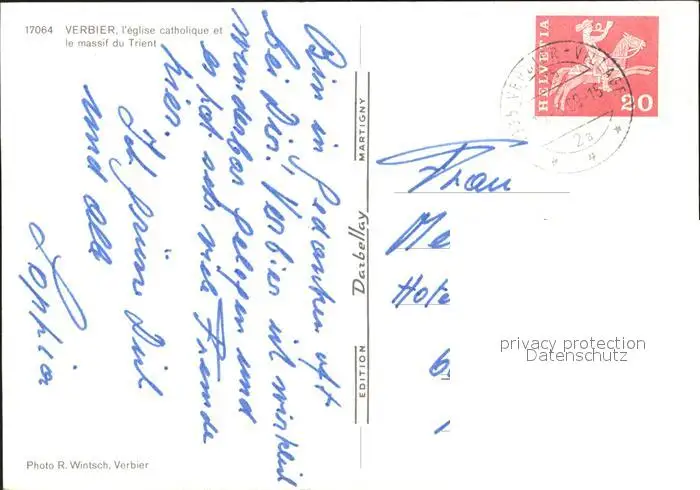 17064 VERBIER, l'église catholique et
le massif du Trient
Bin in Gedanken oft
bei Dir! Verbier ist wirklich
wunderbar gelegen und
es hat sehr viele Fremde
hier.
Ich grüsse Dich
und alle
EDITION Darbellay MARTIGNY
HELVETIA
20
VERBIER-VILLAGE
2a
Frau
Me
Hote
privacy protection
Datenschutz
Photo R. Wintsch, Verbier